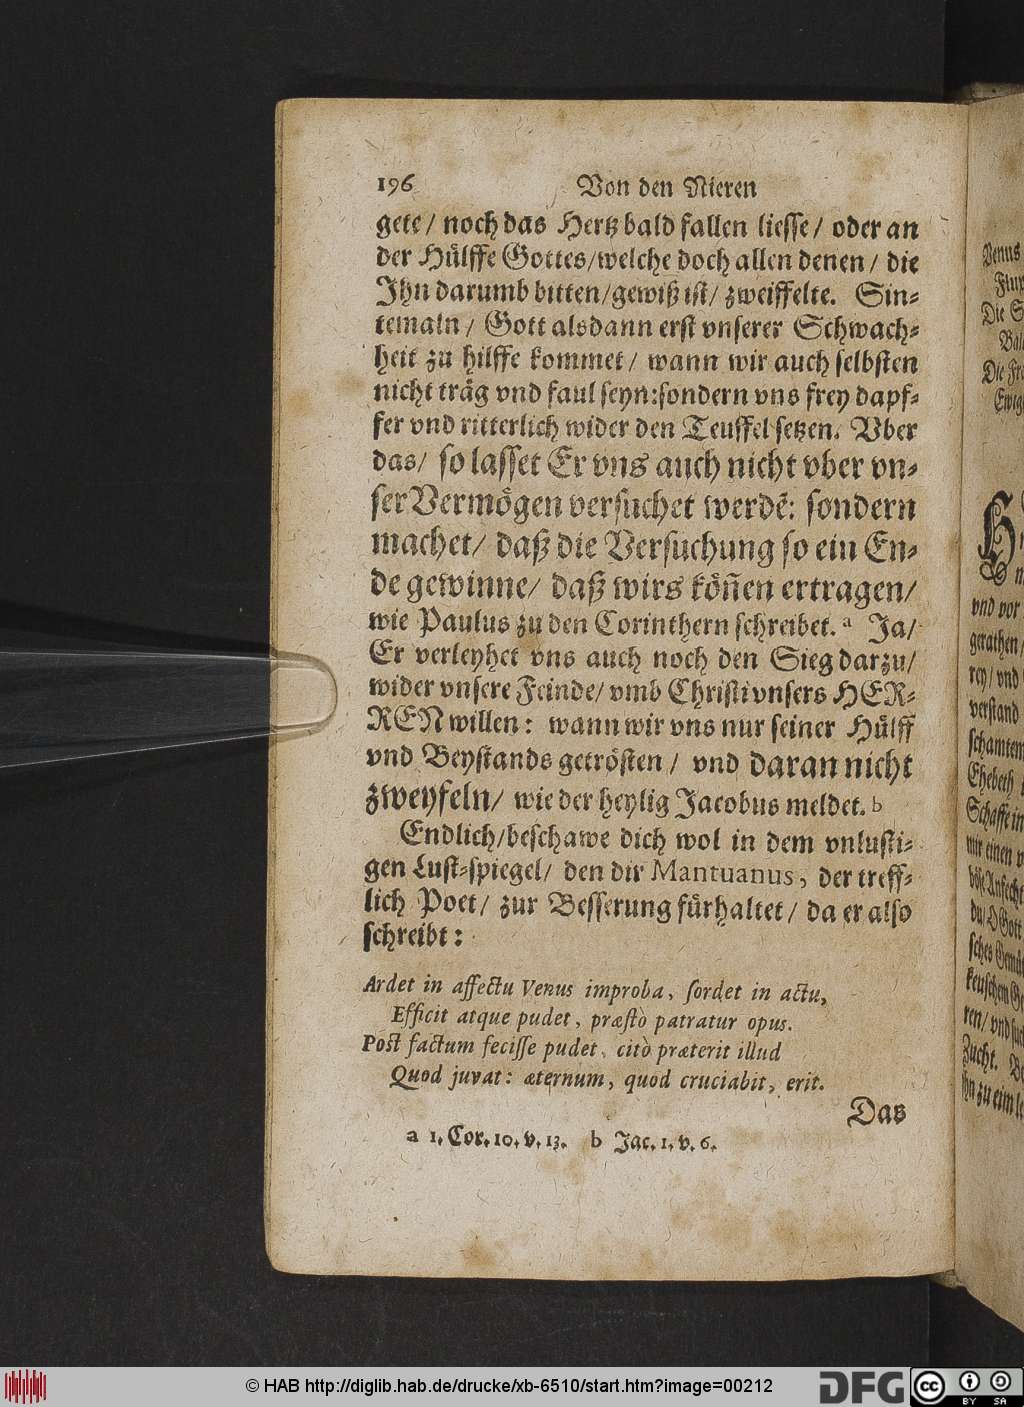 196 Von den Nieren
gete / noch das Hertz bald fallen liesse / oder an
der Hülffe Gottes/welche doch allen denen / die
Ihn darumb bitten/gewiß ist/ zweiffelte. Sin-
temaln / Gott alsdann erst vnserer Schwach-
heit zu hilffe kommet / wann wir auch selbsten
nicht träg vnd faul seyn:sondern vns frey dapf-
fer vnd ritterlich wider den Teuffel setzen. Vber
das/ so lasset Er vns auch nicht vber vn-
ser Vermögen versuchet werdẽ: sondern
machet/ daß die Versuchung so ein En-
de gewinne/ daß wirs köñen ertragen/
wie Paulus zu den Corinthern schreibet. a Ja/
Er verleyhet vns auch noch den Sieg darzu/
wider vnsere Feinde/ vmb Christi vnsers HER-
REN willen: wann wir vns nur seiner Hülff
vnd Beystands getrösten / vnd daran nicht
zweyfeln/ wie der heylig Jacobus meldet. b
Endlich/beschawe dich wol in dem vnlusti-
gen Lust-spiegel/ den dir Mantuanus, der treff-
lich Poet/ zur Besserung fürhaltet / da er also
schreibt:
Ardet in affectu Venus improba, sordet in actu,
Efficit atque pudet, præsto patratur opus.
Post factum fecisse pudet, citò præterit illud
Quod juvat: æternum, quod cruciabit, erit.
Das
a 1. Cor. 10. v. 13. b Jac. 1. v. 6.
Venus
Die
Die
Ewig
vnd vor
gerathen/
rey/ vnd
verstand
schamtem
Ehebeth
Schaffe in
mir einen
du/ O Gott
sches Gemüt
keuschem
ren/ vnd
Zucht.
ihn zu eim
© HAB http://diglib.hab.de/drucke/xb-6510/start.htm?image=00212
DFG
cc
BY SA